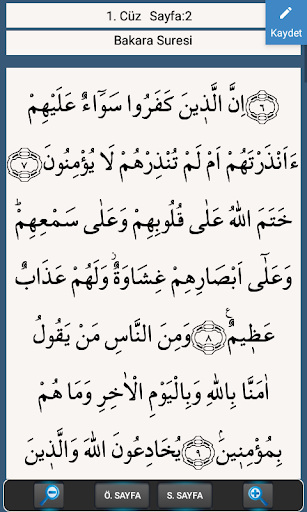 1. Cüz Sayfa:2
Kaydet
Bakara Suresi
﴿٦﴾ اِنَّ الَّذ۪ينَ كَفَرُوا سَوَٓاءٌ عَلَيْهِمْ
ءَاَنْذَرْتَهُمْ اَمْ لَمْ تُنْذِرْهُمْ لَا يُؤْمِنُونَ ﴿٧﴾
خَتَمَ اللّٰهُ عَلٰى قُلُوبِهِمْ وَعَلٰى سَمْعِهِمْۜ
وَعَلٰٓى اَبْصَارِهِمْ غِشَاوَةٌۘ وَلَهُمْ عَذَابٌ
عَظ۪يمٌ۟ ﴿٨﴾ وَمِنَ النَّاسِ مَنْ يَقُولُ
اٰمَنَّا بِاللّٰهِ وَبِالْيَوْمِ الْاٰخِرِ وَمَا هُمْ
بِمُؤْمِن۪ينَۢ ﴿٩﴾ يُخَادِعُونَ اللّٰهَ وَالَّذ۪ينَ
Ö. SAYFA
S. SAYFA